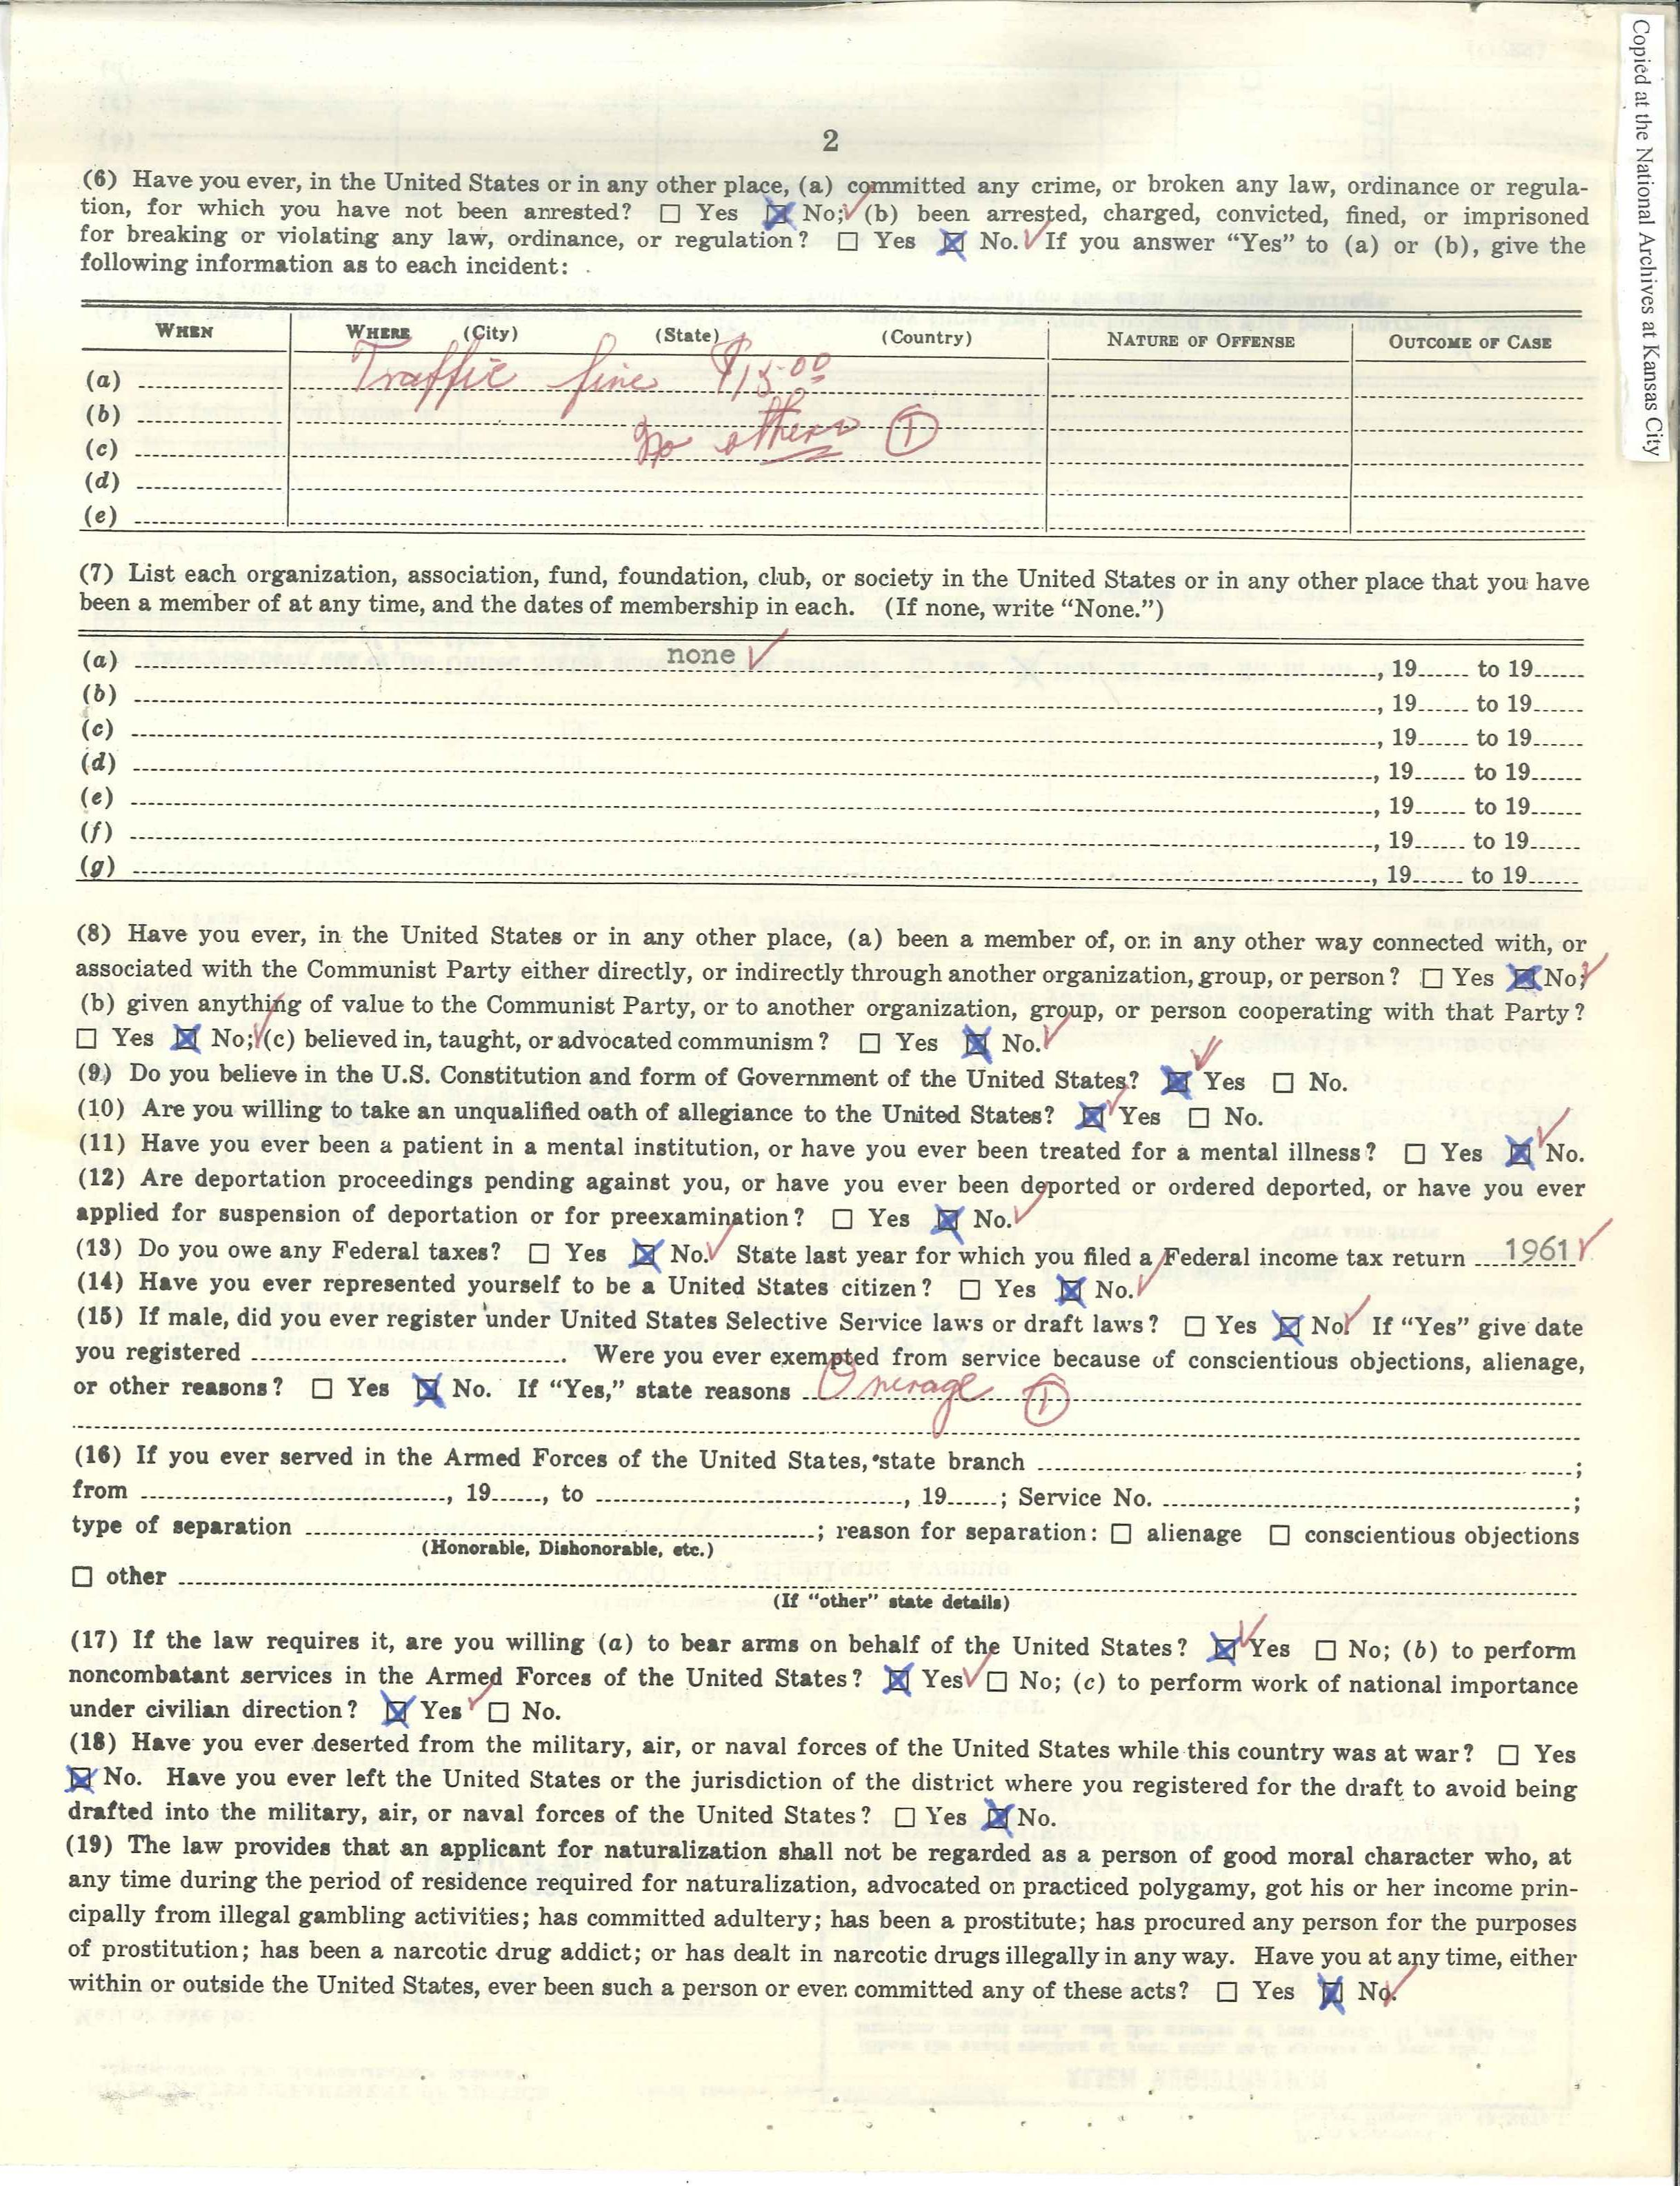 Copied at the National Archives at Kansas City
2
(6) Have you ever, in the United States or in any other place, (a) committed any crime, or broken any law, ordinance or regula-
tion, for which you have not been arrested? ☐ Yes ☒ No; (b) been arrested, charged, convicted, fined, or imprisoned
for breaking or violating any law, ordinance, or regulation? ☐ Yes ☒ No. If you answer “Yes” to (a) or (b), give the
following information as to each incident:
WHEN WHERE (City) (State) (Country) NATURE OF OFFENSE OUTCOME OF CASE
(a) Traffic fine $15.00
(b)
(c) No others 1
(d)
(e)
(7) List each organization, association, fund, foundation, club, or society in the United States or in any other place that you have
been a member of at any time, and the dates of membership in each. (If none, write “None.”)
(a) none , 19 to 19
(b) , 19 to 19
(c) , 19 to 19
(d) , 19 to 19
(e) , 19 to 19
(f) , 19 to 19
(g) , 19 to 19
(8) Have you ever, in the United States or in any other place, (a) been a member of, or in any other way connected with, or
associated with the Communist Party either directly, or indirectly through another organization, group, or person? ☐ Yes ☒ No;
(b) given anything of value to the Communist Party, or to another organization, group, or person cooperating with that Party?
☐ Yes ☒ No; (c) believed in, taught, or advocated communism? ☐ Yes ☒ No.
(9) Do you believe in the U.S. Constitution and form of Government of the United States? ☒ Yes ☐ No.
(10) Are you willing to take an unqualified oath of allegiance to the United States? ☒ Yes ☐ No.
(11) Have you ever been a patient in a mental institution, or have you ever been treated for a mental illness? ☐ Yes ☒ No.
(12) Are deportation proceedings pending against you, or have you ever been deported or ordered deported, or have you ever
applied for suspension of deportation or for preexamination? ☐ Yes ☒ No.
(13) Do you owe any Federal taxes? ☐ Yes ☒ No. State last year for which you filed a Federal income tax return 1961
(14) Have you ever represented yourself to be a United States citizen? ☐ Yes ☒ No.
(15) If male, did you ever register under United States Selective Service laws or draft laws? ☐ Yes ☒ No. If “Yes” give date
you registered . Were you ever exempted from service because of conscientious objections, alienage,
or other reasons? ☐ Yes ☒ No. If “Yes,” state reasons Overage 1
(16) If you ever served in the Armed Forces of the United States, state branch ;
from , 19 , to , 19 ; Service No. ;
type of separation ; reason for separation: ☐ alienage ☐ conscientious objections
(Honorable, Dishonorable, etc.)
☐ other
(If “other” state details)
(17) If the law requires it, are you willing (a) to bear arms on behalf of the United States? ☒ Yes ☐ No; (b) to perform
noncombatant services in the Armed Forces of the United States? ☒ Yes ☐ No; (c) to perform work of national importance
under civilian direction? ☒ Yes ☐ No.
(18) Have you ever deserted from the military, air, or naval forces of the United States while this country was at war? ☐ Yes
☒ No. Have you ever left the United States or the jurisdiction of the district where you registered for the draft to avoid being
drafted into the military, air, or naval forces of the United States? ☐ Yes ☒ No.
(19) The law provides that an applicant for naturalization shall not be regarded as a person of good moral character who, at
any time during the period of residence required for naturalization, advocated or practiced polygamy, got his or her income prin-
cipally from illegal gambling activities; has committed adultery; has been a prostitute; has procured any person for the purposes
of prostitution; has been a narcotic drug addict; or has dealt in narcotic drugs illegally in any way. Have you at any time, either
within or outside the United States, ever been such a person or ever committed any of these acts? ☐ Yes ☒ No.